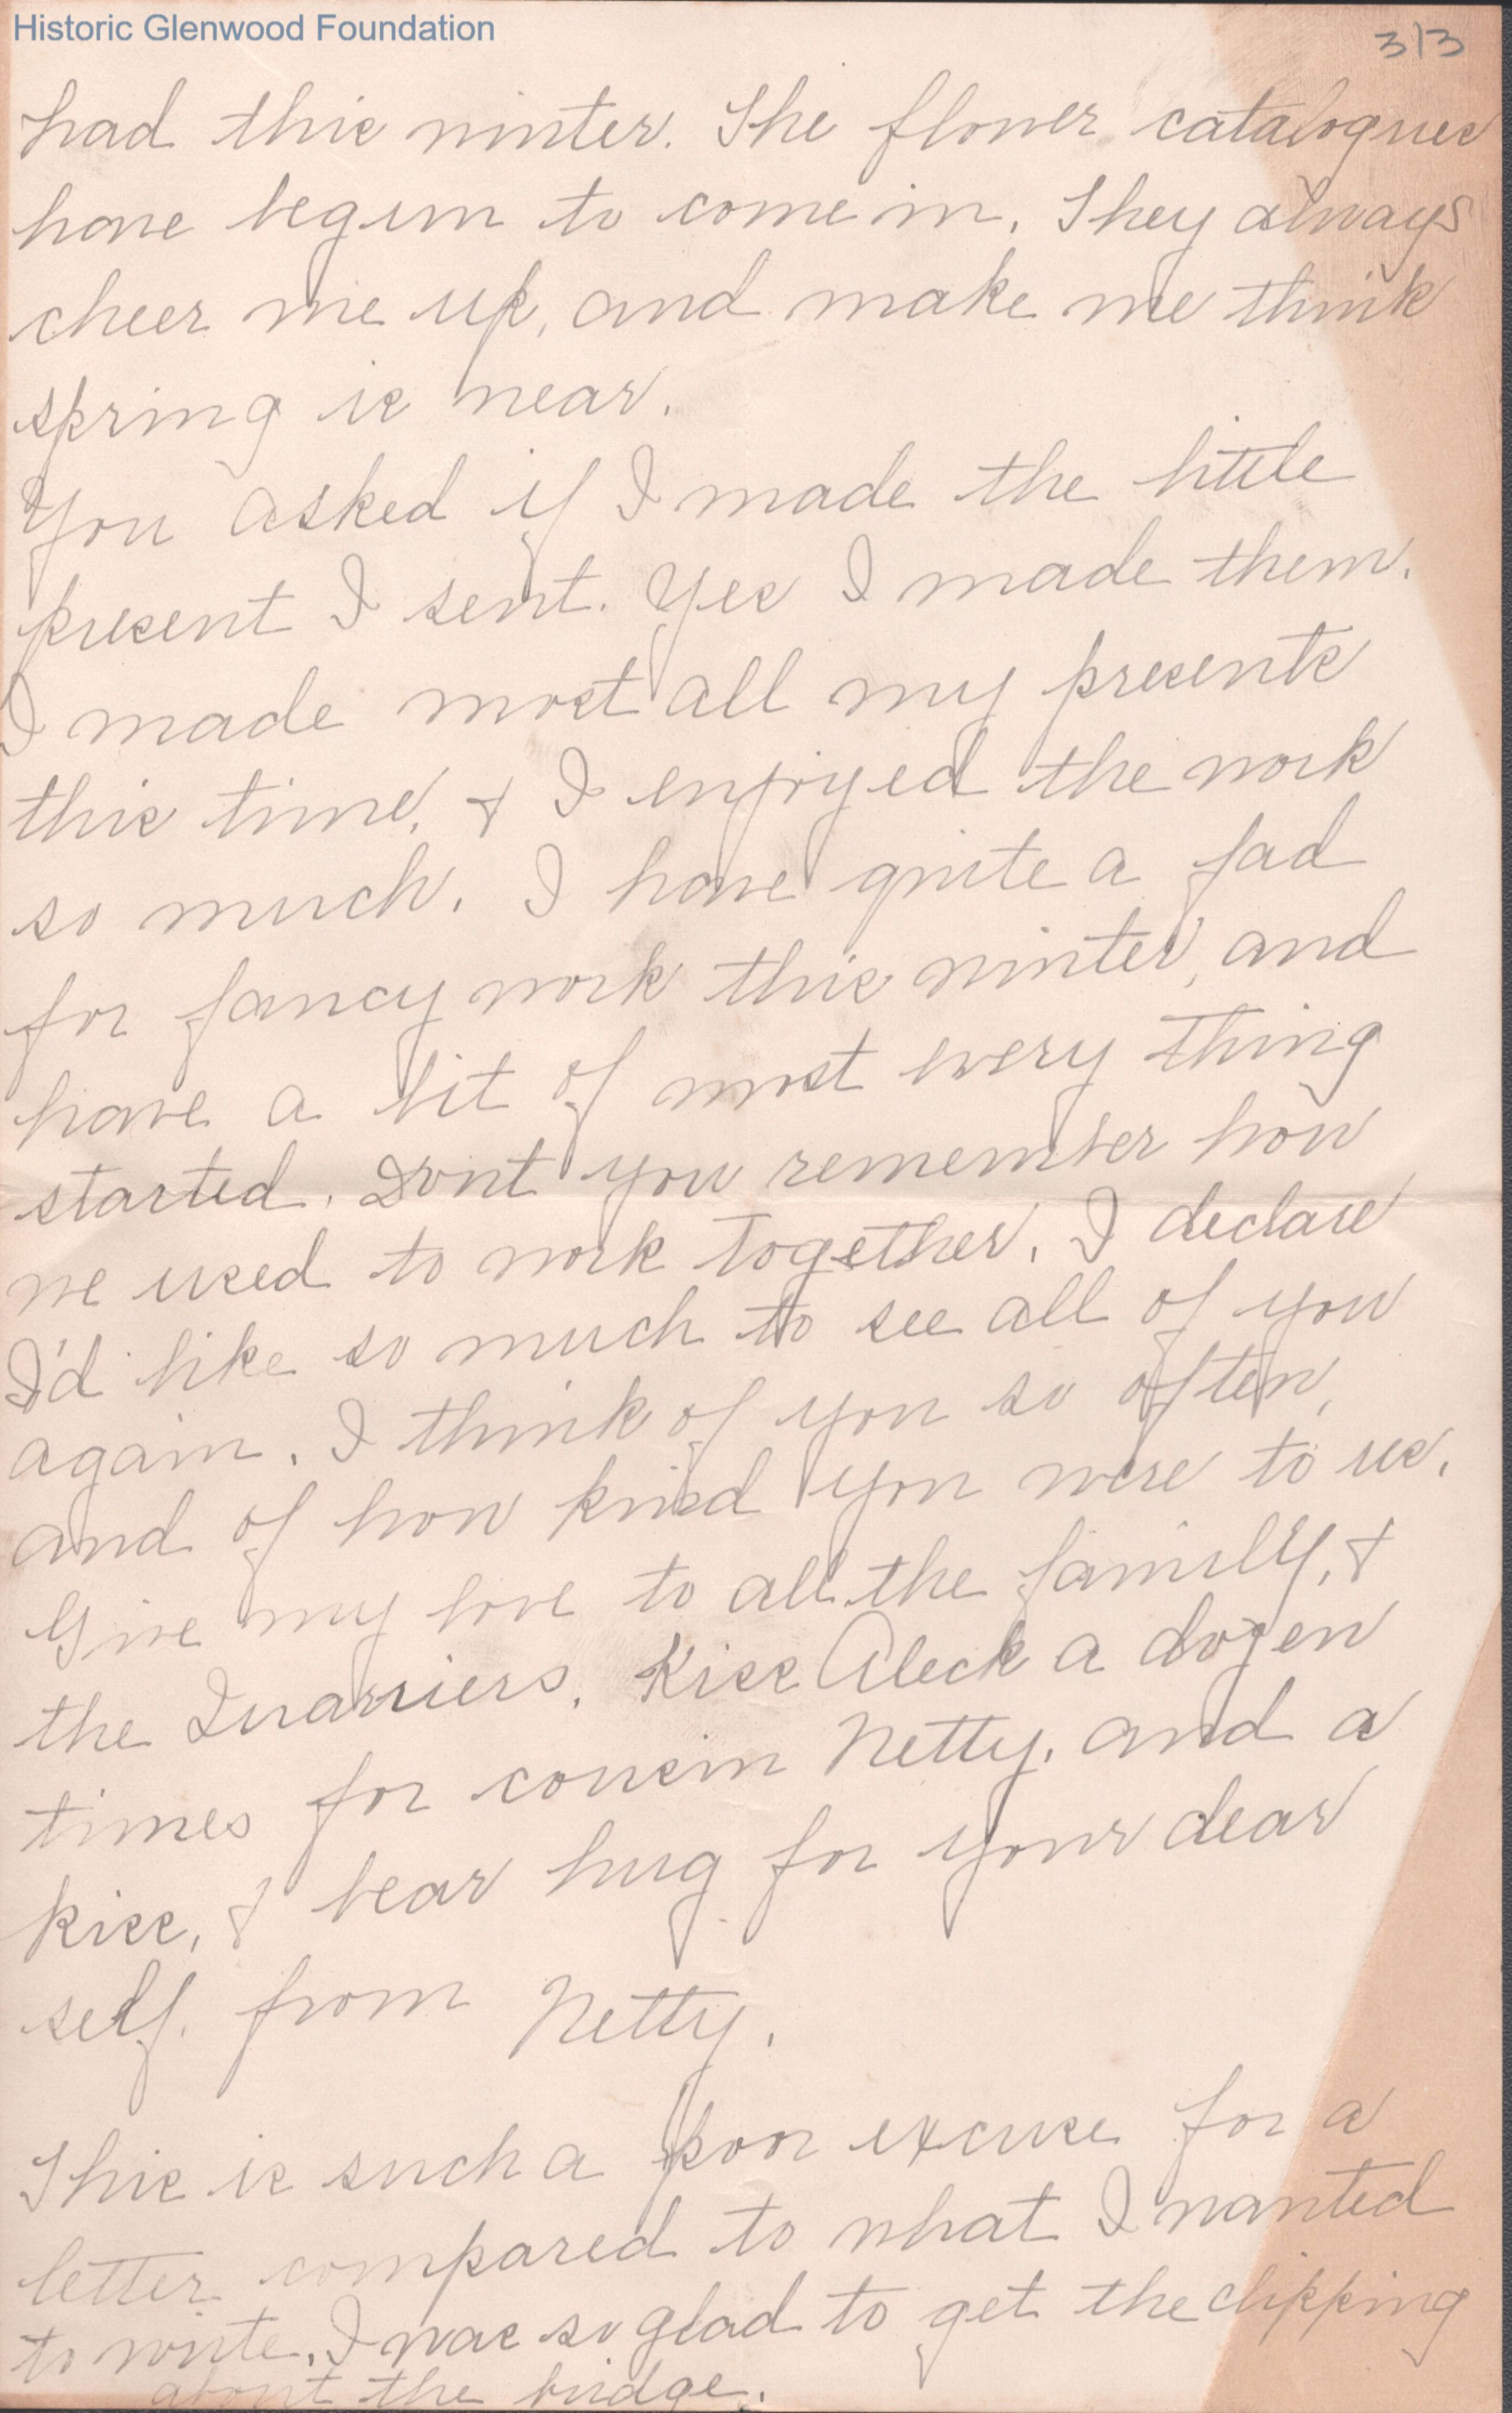 Historic Glenwood Foundation
313
had this winter. The flower catalogues
have begun to come in. They always
cheer me up, and make me think
spring is near.
You asked if I made the little
present I sent. Yes I made them.
I made most all my presents
this time, & I enjoyed the work
so much. I have quite a fad
for fancy work this winter, and
have a bit of most every thing
started. Dont you remember how
we used to work together. I declare
I'd like so much to see all of you
again. I think of you so often,
and of how kind you were to us.
Give my love to all the family, &
the Quarriers. Kiss Aleck a dozen
times for cousin Netty. and a
kiss, & bear hug for your dear
self. from Netty.
This is such a poor excuse for a
letter compared to what I wanted
to write. I was so glad to get the clipping
about the bridge.